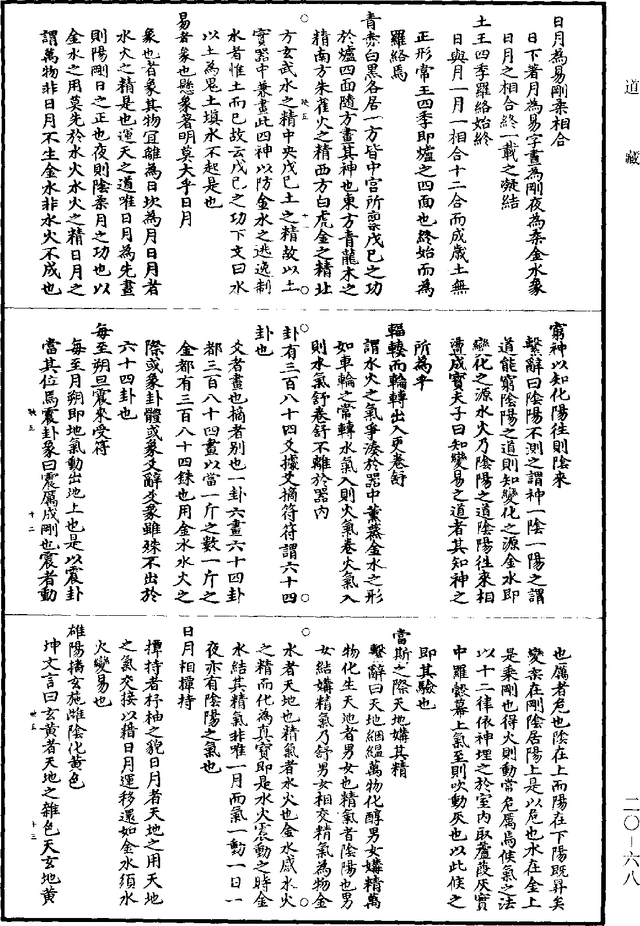 道藏
日月為易剛柔相合
日下著月為易字晝為剛夜為柔金水象
日月之相合終一載之凝結
土王四季羅絡始終
日與月一月一相合十二合而成歲土無
正形常王四季即爐之四面也終始而為
羅絡焉
青赤白黑各居一方皆中宮所禀戊己之功
於爐四面隨方畫其神也東方青龍木之
精南方朱雀火之精西方白虎金之精北
方玄武水之精中央戊己土之精故以土
實器中兼畫此四神以防金水之逃逸制
水者惟土而已故云戊己之功下文曰水
以土為鬼土填水不起是也
易者象也懸象著明莫大乎日月
象也者象其物宜離為日坎為月日月者
水火之精是也運天之道唯日月為先晝
則陽剛日之正也夜則陰柔月之功也以
金水之用莫先於水火水火之精日月之
謂萬物非日月不生金水非水火不成也
窮神以知化陽往則陰來
繫辭曰陰陽不測之謂神一陰一陽之謂
道能窮陰陽之道則知變化之源金水即
變化之源水火乃陰陽之道陰陽往來相
盪成寶夫子曰知變易之道者其知神之
所為乎
輻輳而輪轉出入更卷舒
謂水火之氣爭湊於器中薰蒸金水之形
如車輪之常轉水氣入則火氣卷火氣入
則水氣舒卷舒不離於器內
卦有三百八十四爻據爻摘符符謂六十四
卦也
爻者畫也摘者別也一卦六畫六十四卦
都三百八十四畫以當一斤之數一斤之
金都有三百八十四銖也用金水水火之
際或象卦體或象爻辭爻象雖殊不出於
六十四卦也
每至朔旦震來受符
每至月朔即地氣動出地上也是以震卦
當其位焉震卦象曰震厲成剛也震者動
也厲者危也陰在上而陽在下陽既昇矣
變柔在剛陰居陽上是以危也水在金上
是乘剛也得火則動常危厲焉候氣之法
以十二律依神埋之於室內取蘆葭灰實
中羅縠幕上氣至則吹動灰也以此候之
即其驗也
當斯之際天地媾其精
繫辭曰天地絪縕萬物化醇男女媾精萬
物化生天地者男女也精氣者陰陽也男
女結媾精氣乃舒男女相交精氣為物金
水者天地也精氣者水火也金水感水火
之精而化為真寶即是水火震動之時金
水結其精氣非唯一月而氣一動一日一
夜亦有陰陽之氣也
日月相撢持
撢持者杼柚之貌日月者天地之用天地
之氣交接以藉日月運移還如金水須水
火變易也
雄陽播玄施雌陰化黃包
坤文言曰玄黃者天地之雜色天玄地黃
二〇—六八